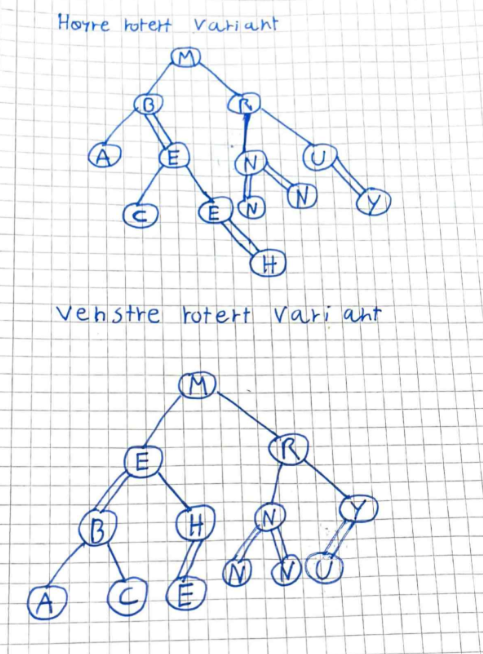 Høyre rotert Variant
M
B R
A E N U
C E N N Y
H
Venstre rotert Variant
M
E R
B H N Y
A C E N N U